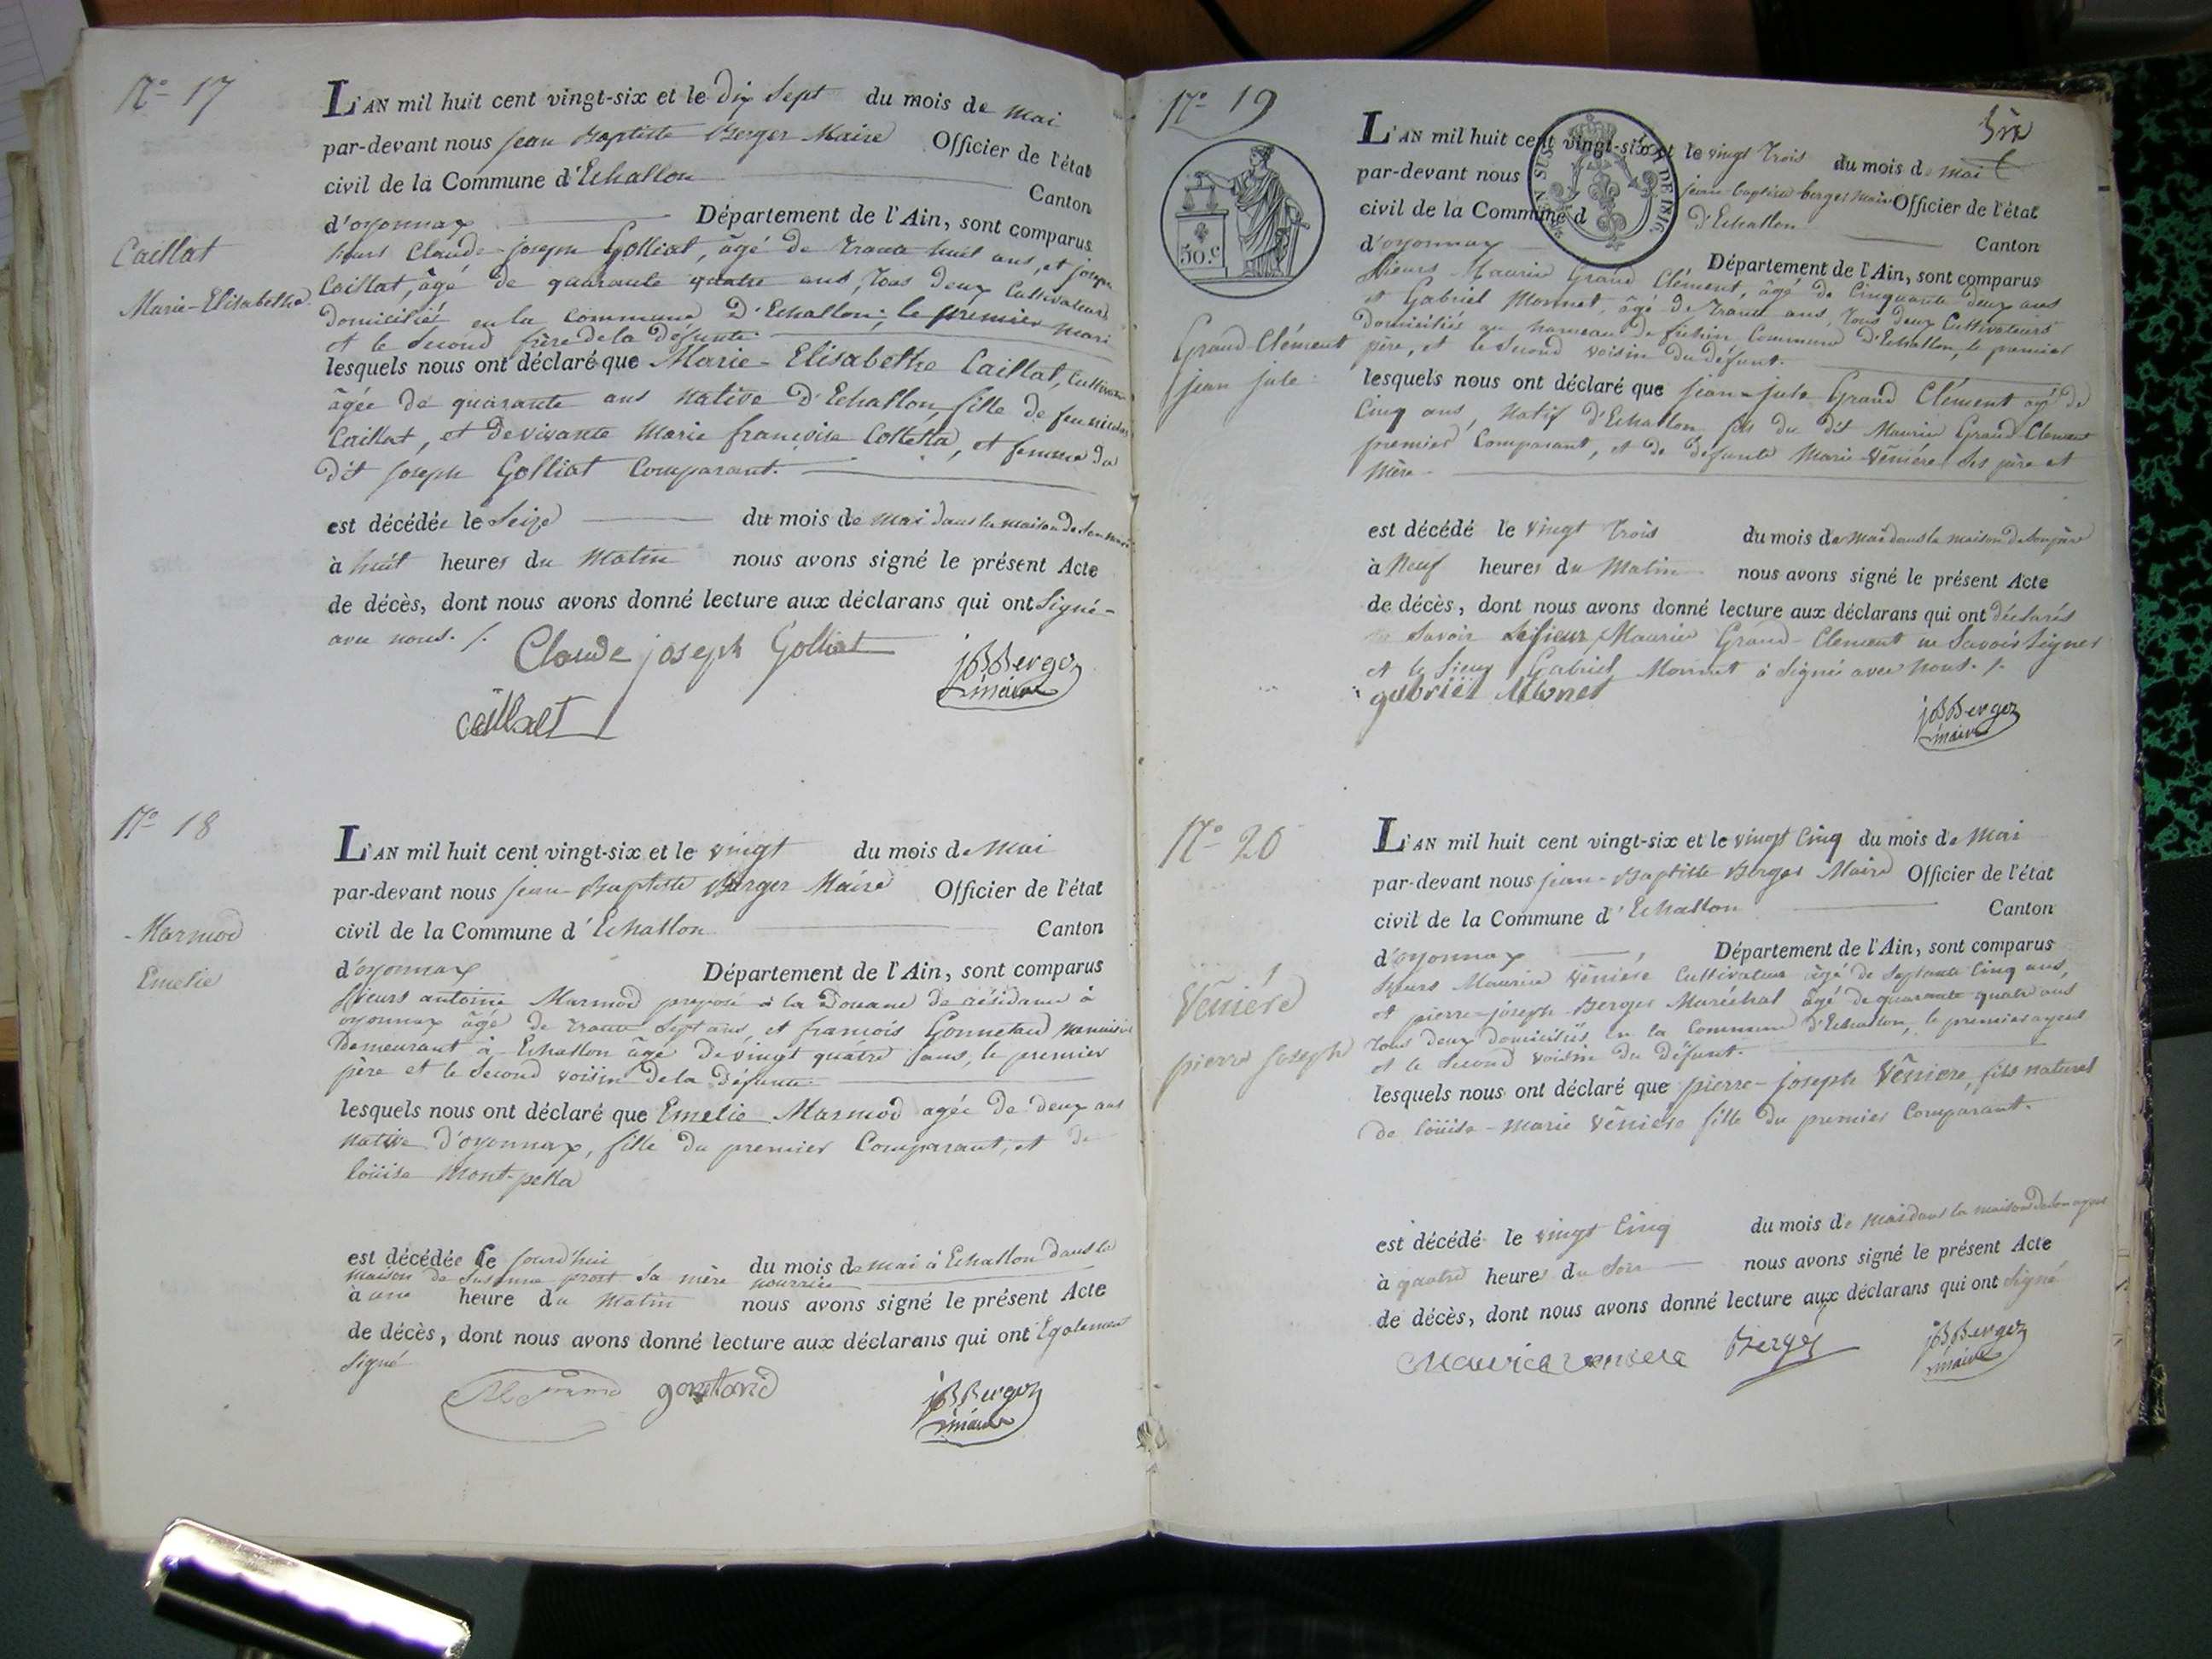 N.° 17
L'AN mil huit cent vingt-six et le dix Sept du mois de mai
par-devant nous jean Baptiste Berger Maire Officier de l'état
civil de la Commune d'Echallon Canton
d'oyonnax Département de l'Ain, sont comparus
Sieurs Claude-joseph Golliat, âgé de trante huit ans, et joseph
Caillat, âgé de quarante quatre ans, tous deux Cultivateurs
domiciliés en la Commune D'Echallon; le premier mari
et le Second frère de la défunte
Caillat
Marie-Elisabethe
lesquels nous ont déclaré que Marie-Elisabethe Caillat,
âgée de quarante ans native D'Echallon, fille de feu nicolas
Caillat, et de vivante Marie françoise Collettaz, et femme du
dit joseph Golliat Comparant.
est décédée le Seize du mois de mai dans la maison de son mari
à huit heures du Matin nous avons signé le présent Acte
de décès, dont nous avons donné lecture aux déclarans qui ont Signé
avec nous. /.
Claude joseph Golliat
jBBerger
maire
caillat
N.° 18
L'AN mil huit cent vingt-six et le vingt du mois de Mai
par-devant nous jean-Baptiste Berger Maire Officier de l'état
civil de la Commune d'Echallon Canton
d'oyonnax Département de l'Ain, sont comparus
Sieurs antoine Marmod preposé à la Douane de résidance à
oyonnax âgé de trante Sept ans, et francois Gonnetand
Demeurant à Echallon âgé de vingt quatre ans, le premier
père et le Second voisin de la Défunte
Marmod
Emelie
lesquels nous ont déclaré que Emelie Marmod agée de deux ans
native d'oyonnax, fille du premier Comparant, et de
loüise Mont-pella
est décédée le jourd'hui du mois de mai à Echallon dans la
maison de Susanne prost sa mère nourrice
à une heure du Matin nous avons signé le présent Acte
de décès, dont nous avons donné lecture aux déclarans qui ont Egalement
Signé
gonetand
jBBerger
maire
N.° 19
Six
L'AN mil huit cent vingt-six et le vingt trois du mois de mai
par-devant nous jean-baptiste berger maire Officier de l'état
civil de la Commune d'Echallon Canton
d'oyonnax Département de l'Ain, sont comparus
50.c
DE 1816.
Sieurs Maurice Grand Clément, âgé de Cinquante deux ans
et Gabriel Monnet, âgé de trante ans, tous deux Cultivateurs
domiciliés au hameau de Commune d'Echallon, le premier
père, et le Second voisin du défunt.
Grand-Clément
jean jule
lesquels nous ont déclaré que jean-jule Grand Clément agé de
Cinq ans, Natif d'Echallon fils du dit Maurice Grand-Clement
premier Comparant, et de défunte Marie Vénière Ses père et
Mère
est décédé le vingt trois du mois de mai dans la maison de son père
à Neuf heures du Matin nous avons signé le présent Acte
de décès, dont nous avons donné lecture aux déclarans qui ont déclarés
Savoir Maurice Grand-Clement ne Savoir Signer
et le Sieur Gabriel Monnet à Signé avec nous. /.
gabriel Monet
jBBerger
maire
N.° 20
L'AN mil huit cent vingt-six et le vingt Cinq du mois de Mai
par-devant nous jean-Baptiste Berger Maire Officier de l'état
civil de la Commune d'Echallon Canton
d'oyonnax Département de l'Ain, sont comparus
Sieurs Maurice Vénière Cultivateur âgé de Septante Cinq ans,
et pierre-joseph Berger Maréchal âgé de quarante quatre ans
tous deux Domiciliés en la Commune d'Echallon, le premier ayeul
et le Second voisin du Défunt.
Vénière
pierre Joseph
lesquels nous ont déclaré que pierre-joseph Vénière, fils naturel
de loüise-Marie Vénière fille du premier Comparant.
est décédé le vingt Cinq du mois de Mai dans la maison de son ayeul
à quatre heures du Soir nous avons signé le présent Acte
de décès, dont nous avons donné lecture aux déclarans qui ont Signé
Maurice veniere
Berger
jBBerger
maire